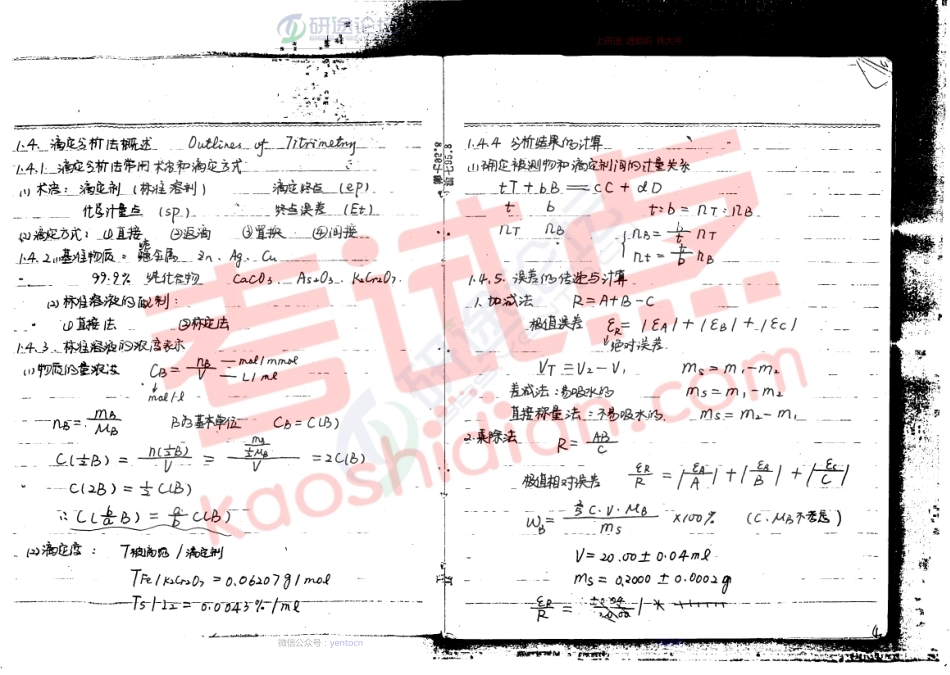 研途论坛
1.4 滴定分析法概述 Outlines of Titrimetry
1.4.1 滴定分析法常用术语和滴定方式
(1) 术语：滴定剂（标准溶剂） 滴定终点 (ep)
化学计量点 (sp) 终点误差 (Et)
(2) 滴定方式：①直接 ②返滴 ③置换 ④间接
1.4.2 基准物质：纯金属 Zn、Ag、Cu
99.9% 纯化合物 CaCO3 As2O3 K2Cr2O7
(2) 标准溶液的配制：
①直接法 ②标定法
1.4.3 标准溶液的浓度表示
(1) 物质的量浓度 CB = nB/V — mol/mmol — L/ml
mol/l
nB = mB/MB B的基本单位 CB = C(B)
C(½B) = n(½B)/V = (mB/½MB)/V = 2C(B)
C(2B) = ½ C(B)
∴ C(b/a B) = a/b C(B)
(2) 滴定度： T被滴物/滴定剂
TFe/K2Cr2O7 = 0.06207g/mol
Ts/I2 = 0.0043%/ml
1.4.4 分析结果的计算
(1) 确定被测物和滴定剂间的计量关系
tT + bB == cC + dD
t b t:b = nT:nB
nT nB { nB = b/t nT
nt = t/b nB
1.4.5 误差的传递与计算
1. 加减法 R = A+B-C
极值误差 εR = |εA| + |εB| + |εC|
绝对误差
VT = V2 - V1 ms = m1 - m2
差减法：易吸水的 ms = m1 - m2
直接称量法：不易吸水的 ms = m2 - m1
2. 乘除法 R = AB/C
极值相对误差 εR/R = |εA/A| + |εB/B| + |εC/C|
WB = C·V·MB/ms ×100% (C·MB不考虑)
V = 20.00 ± 0.04 ml
ms = 0.2000 ± 0.0002 g
εR/R =
考试点
kaoshidian.com
微信公众号：yentocn